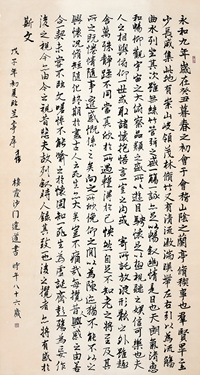 永和九年歲在癸丑暮春之初會于會稽山陰之蘭亭脩稧事也羣賢畢至
少長咸集此地有崇山峻領茂林脩竹又有清流激湍暎帶左右引以為流觴
曲水列坐其次雖無絲竹管弦之盛一觴一詠亦足以暢敘幽情是日也天朗氣清惠風
和暢仰觀宇宙之大俯察品類之盛所以遊目騁懷足以極視聽之娛信可樂也夫
人之相與俯仰一世或取諸懷抱悟言一室之內或因寄所託放浪形骸之外雖趣
舍萬殊靜躁不同當其欣於所遇暫得於己快然自足不知老之將至及其
所之既惓情隨事遷感慨係之矣向之所欣俛仰之閒以為陳迹猶不能不以之
興懷況脩短隨化終期於盡古人云死生亦大矣豈不痛哉每攬昔人興感之由若
合一契未嘗不臨文嗟悼不能喻之於懷固知一死生為虛誕齊彭殤為妄作
後之視今亦由今之視昔悲夫故列敘時人錄其所述雖世殊事異所以興懷其致一也後之攬者亦將有感於
斯文
戊子年初夏 蘭亭序
棲霞沙門達道書 時年八十六歲